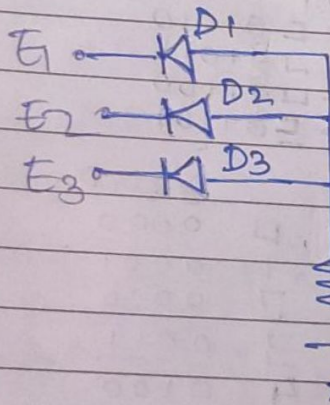 E1 D1
E2 D2
E3 D3